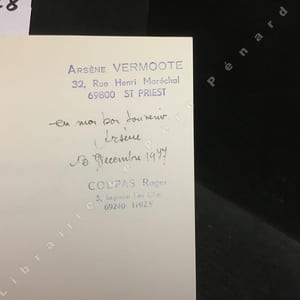 8
ARSÈNE VERMOOTE
32, Rue Henri Maréchal
69800 ST PRIEST
en mon bon souvenir
Arsène
Décembre 1977
COUPAS Roger
69240 THIZY
Librairie Pénard